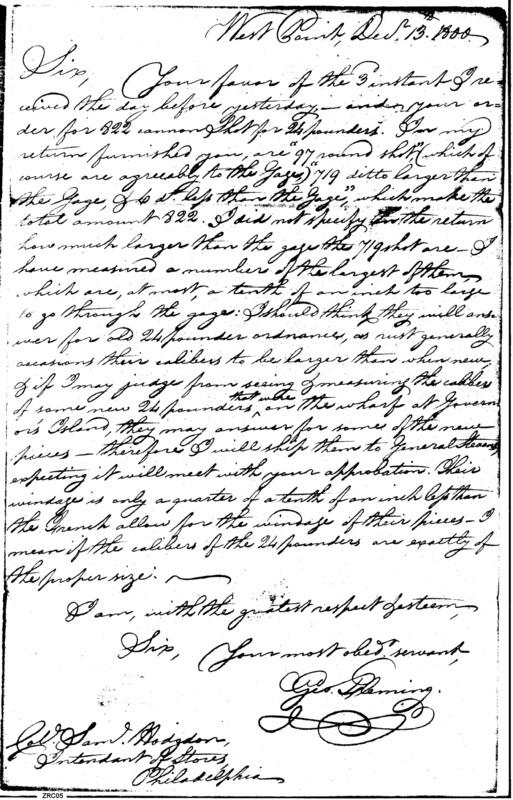 West Point, Decr. 13th. 1800.
Sir, Your favor of the 3 instant I re-
ceived the day before yesterday — and your or-
der for 822 cannon Shot for 24 pounders. In my
return furnished you, are "97 round shot, (which of
course are agreeably to the Gages) 719 ditto larger than
the Gage, & 6 do. less than the Gage", which make the
total amount 822. I did not specify in the return
how much larger than the gage the 719 shot are — I
have measured a number of the largest of them
which are, at most, a tenth of an inch too large
to go through the gage: I should think they will ans-
wer for old 24 pounder ordnance, as rust generally
occasions their calibers to be larger than when new,
& if I may judge from seeing & measuring the calibers
of some new 24 pounders that were on the wharf at Govern-
or's Island, they may answer for some of the new
pieces — therefore I will ship them to General Stevens
expecting it will meet with your approbation. Their
windage is only a quarter of a tenth of an inch less than
the French allow for the windage of their pieces — I
mean if the calibers of the 24 pounders are exactly of
the proper size. —
I am, with the greatest respect & esteem,
Sir, Your most obedt. servant,
Geo. Fleming.
Col. Saml. Hodgdon,
Intendant of Stores
Philadelphia
ZRC05